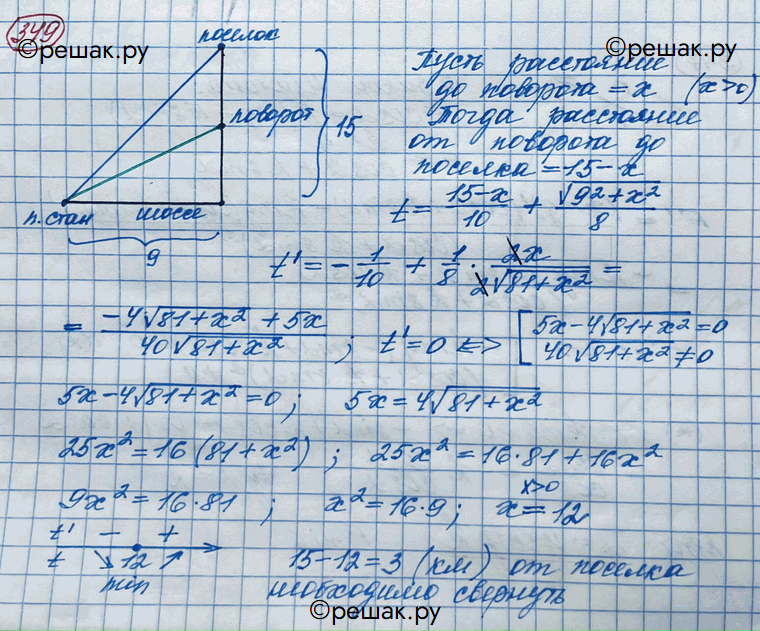 349
©решак.ру
©решак.ру
поселок
поворот
15
п.стан шоссе
9
Пусть расстояние
до поворота = x (x>0)
Тогда расстояние
от поворота до
поселка = 15-x
t = (15-x)/10 + √(9²+x²)/8
t' = -1/10 + 1/8 · 2x/(2√(81+x²)) =
= (-4√(81+x²) + 5x)/(40√(81+x²)) ; t'=0 <=> [ 5x-4√(81+x²)=0
40√(81+x²)≠0
5x-4√(81+x²)=0 ; 5x=4√(81+x²)
25x²=16(81+x²) ; 25x²=16·81+16x²
9x²=16·81 ; x²=16·9 ; x = 12
x>0
t' - +
t ↘ 12 ↗
min
15-12=3 (км) от поселка
необходимо свернуть
©решак.ру